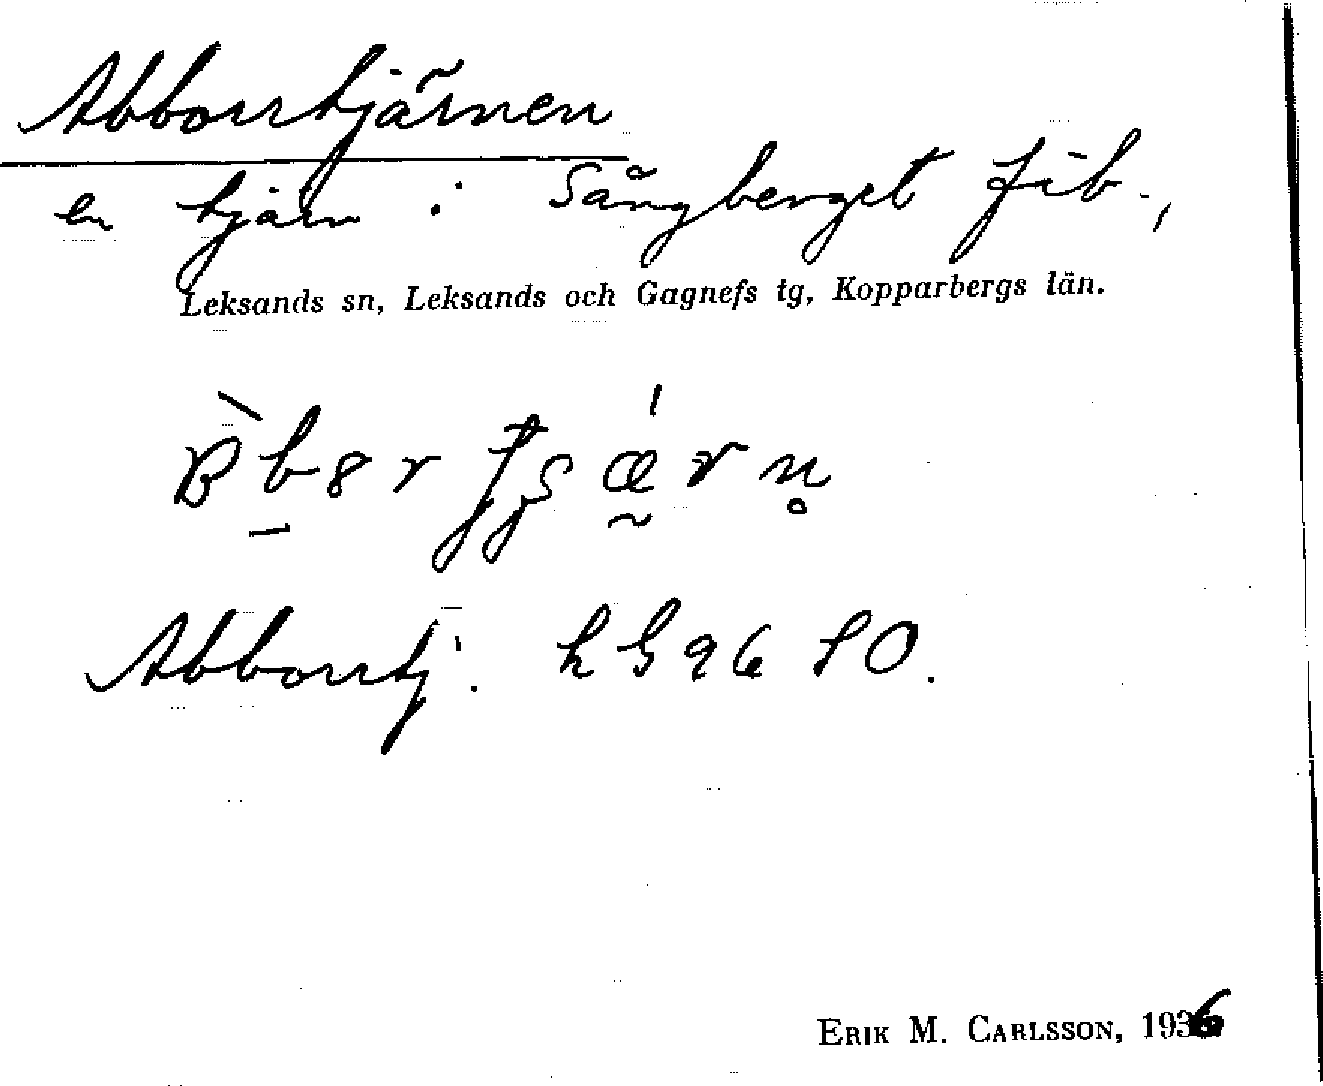 Abborrtjärnen
en tjärn i Sångberget fäb.,
Leksands sn, Leksands och Gagnefs tg, Kopparbergs län.
Abborrtj.
ERIK M. CARLSSON, 1936